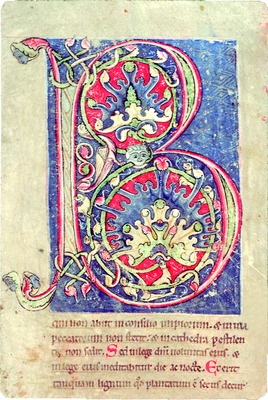 B
qui non abiit in consilio impiorum. & in uia
peccatorum non stetit. & in cathedra pestilen
tie non sedit. Sed in lege dñi uoluntas eius. &
in lege eius meditabitur die ac nocte. Et erit
tanquam lignum qđ plantatum ē secus decur